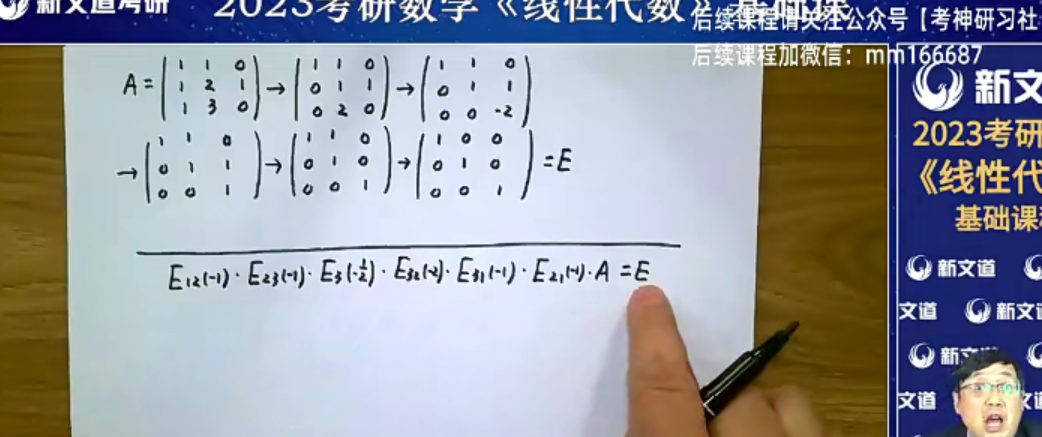 新文道考研
2023考研数学《线性代数》基础课
后续课程请关注公众号【考神研习社
后续课程加微信：mm166687
A = ( 1 1 0 → ( 1 1 0 → ( 1 1 0
1 2 1 0 1 1 0 1 1
1 3 0 ) 0 2 0 ) 0 0 -2 )
→ ( 1 1 0 → ( 1 1 0 → ( 1 0 0
0 1 1 0 1 0 0 1 0 = E
0 0 1 ) 0 0 1 ) 0 0 1 )
E12(-1) · E23(-1) · E3(-1/2) · E32(-2) · E31(-1) · E21(-1) · A = E
新文
2023考研
《线性代
基础课
新文道
文道 新文道
新文道
文道